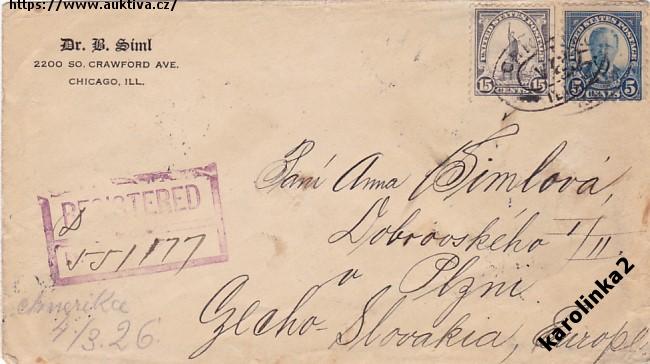 https://www.auktiva.cz/
Dr. B. Siml
2200 SO. CRAWFORD AVE.
CHICAGO, ILL.
UNITED STATES POSTAGE
15 CENTS 15
UNITED STATES POSTAGE
5 CENTS 5
REGISTERED
Paní Anna Šimlová,
Dobrovského I/II
v Plzni
Czecho-Slovakia, Europe
Amerika
4/3.26.
karolinka2